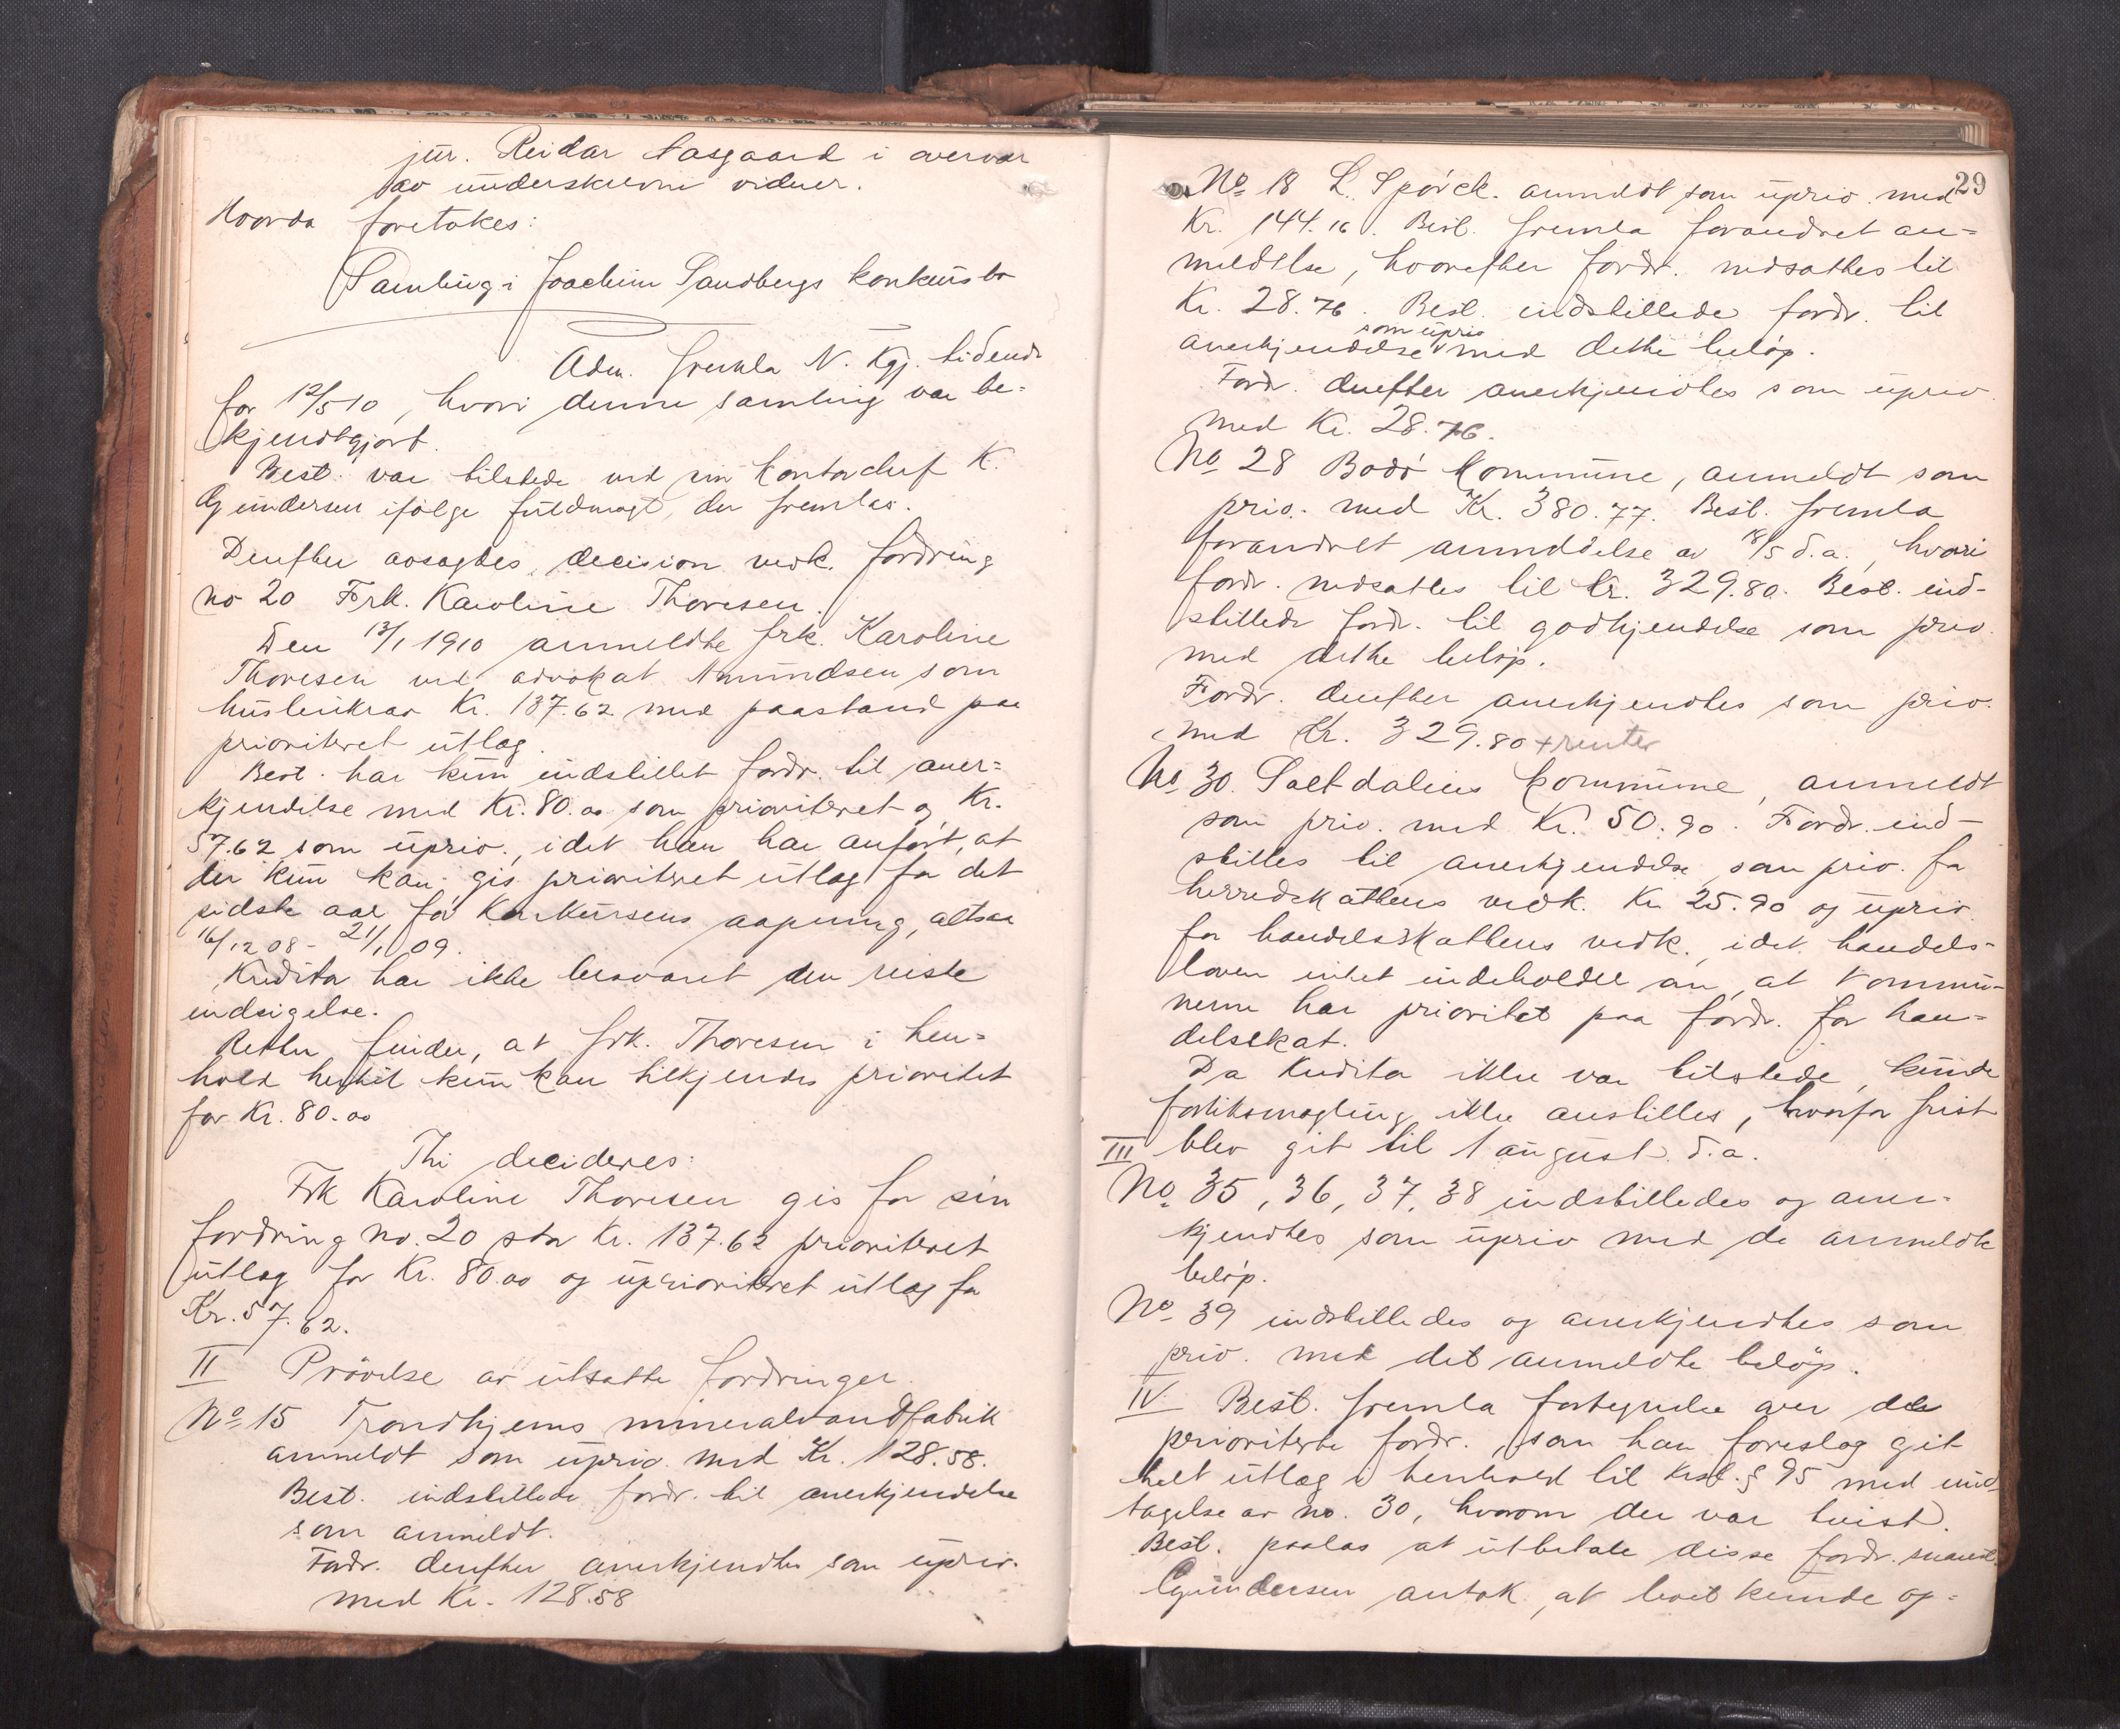 jur. Reidar Aasgaard i overvær
av underskrevne vidner.
Hvorda foretokes:
Samling i Joachim Sandbergs konkursbo
Adm. fremla N. Kgj. tidende
for 12/5 10, hvori denne samling var be-
kjendtgjort.
Best. var tilstede ved sin kontorchef K.
Gundersen ifølge fuldmagt, der fremlas.
Derefter avsagdes decision vedk. fordring
no 20 Frk. Karoline Thoresen.
Den 13/1 1910 anmeldte frk. Karoline
Thoresen ved advokat Amundsen som
husleiekrav Kr. 137.62 med paastand paa
prioritert utlæg.
Best. har kun indstillet fordr. til aner-
kjendelse med Kr. 80.00 som prioriteret og Kr.
57.62 som uprio., idet han har anført, at
der kun kan gis prioriteret utlæg for det
sidste aar før konkursens aapning, altsaa
16/12 08 - 21/1 09.
Kreditor har ikke besvaret den reiste
indsigelse.
Retten finder, at frk. Thoresen i hen-
hold hertil kun kan tilkjendes prioritet
for Kr. 80.00
Thi decideres:
Frk Karoline Thoresen gis for sin
fordring no. 20 stor Kr. 137.62 prioriteret
utlæg for Kr. 80.00 og uprioriteret utlæg for
Kr. 57.62.
II Prøvelse av utsatte fordringer.
No 15 Trondhjems mineralvandfabrik
anmeldt som uprio. med Kr. 128.58.
Best. indstillede fordr. til anerkjendelse
som anmeldt.
Fordr. derefter anerkjendtes som uprio.
med Kr. 128.58
29
No 18 L. Spörck. anmeldt som uprio. med
Kr. 144.16. Best. fremla forandret an-
meldelse, hvorefter fordr. nedsattes til
Kr. 28.76. Best. indstillede fordr. til
som uprio
anerkjendelse med dette beløp.
Fordr. derefter anerkjendtes som uprio.
med Kr. 28.76.
No 28 Bodø kommune, anmeldt som
prio. med Kr. 380.77. Best. fremla
forandret anmeldelse av 18/5 d.a., hvori
fordr. nedsattes til Kr. 329.80. Best. ind-
stillede fordr. til godkjendelse som prio.
med dette beløp.
Fordr. derefter anerkjendtes som prio.
med Kr. 329.80 + renter
No 30. Saltdalens kommune, anmeldt
som prio. med Kr. 50.90. Fordr. ind-
stilles til anerkjendelse som prio. for
herredskattens vedk. Kr 25.90 og uprio.
for handelsskattens vedk., idet handels-
loven intet indeholder om, at kommu-
nerne har prioritet paa fordr. for han-
delsskat.
Da kreditor ikke var tilstede, kunde
forliksmægling ikke anstilles, hvorfor frist
blev git til 1 august d.a.
III
No 35, 36, 37, 38 indstilledes og aner-
kjendtes som uprio med de anmeldte
beløp.
No 39 indstilledes og anerkjendtes som
prio. med det anmeldte beløp.
IV Best. fremla fortegnelse over de
prioriterte fordr., som han foreslog git
helt utlæg i henhold til Krsl. § 95 med und-
tagelse av no. 30, hvorom der var tvist.
Best. paalas at utbetale disse fordr. snarest.
Gundersen antok, at boet kunde op-